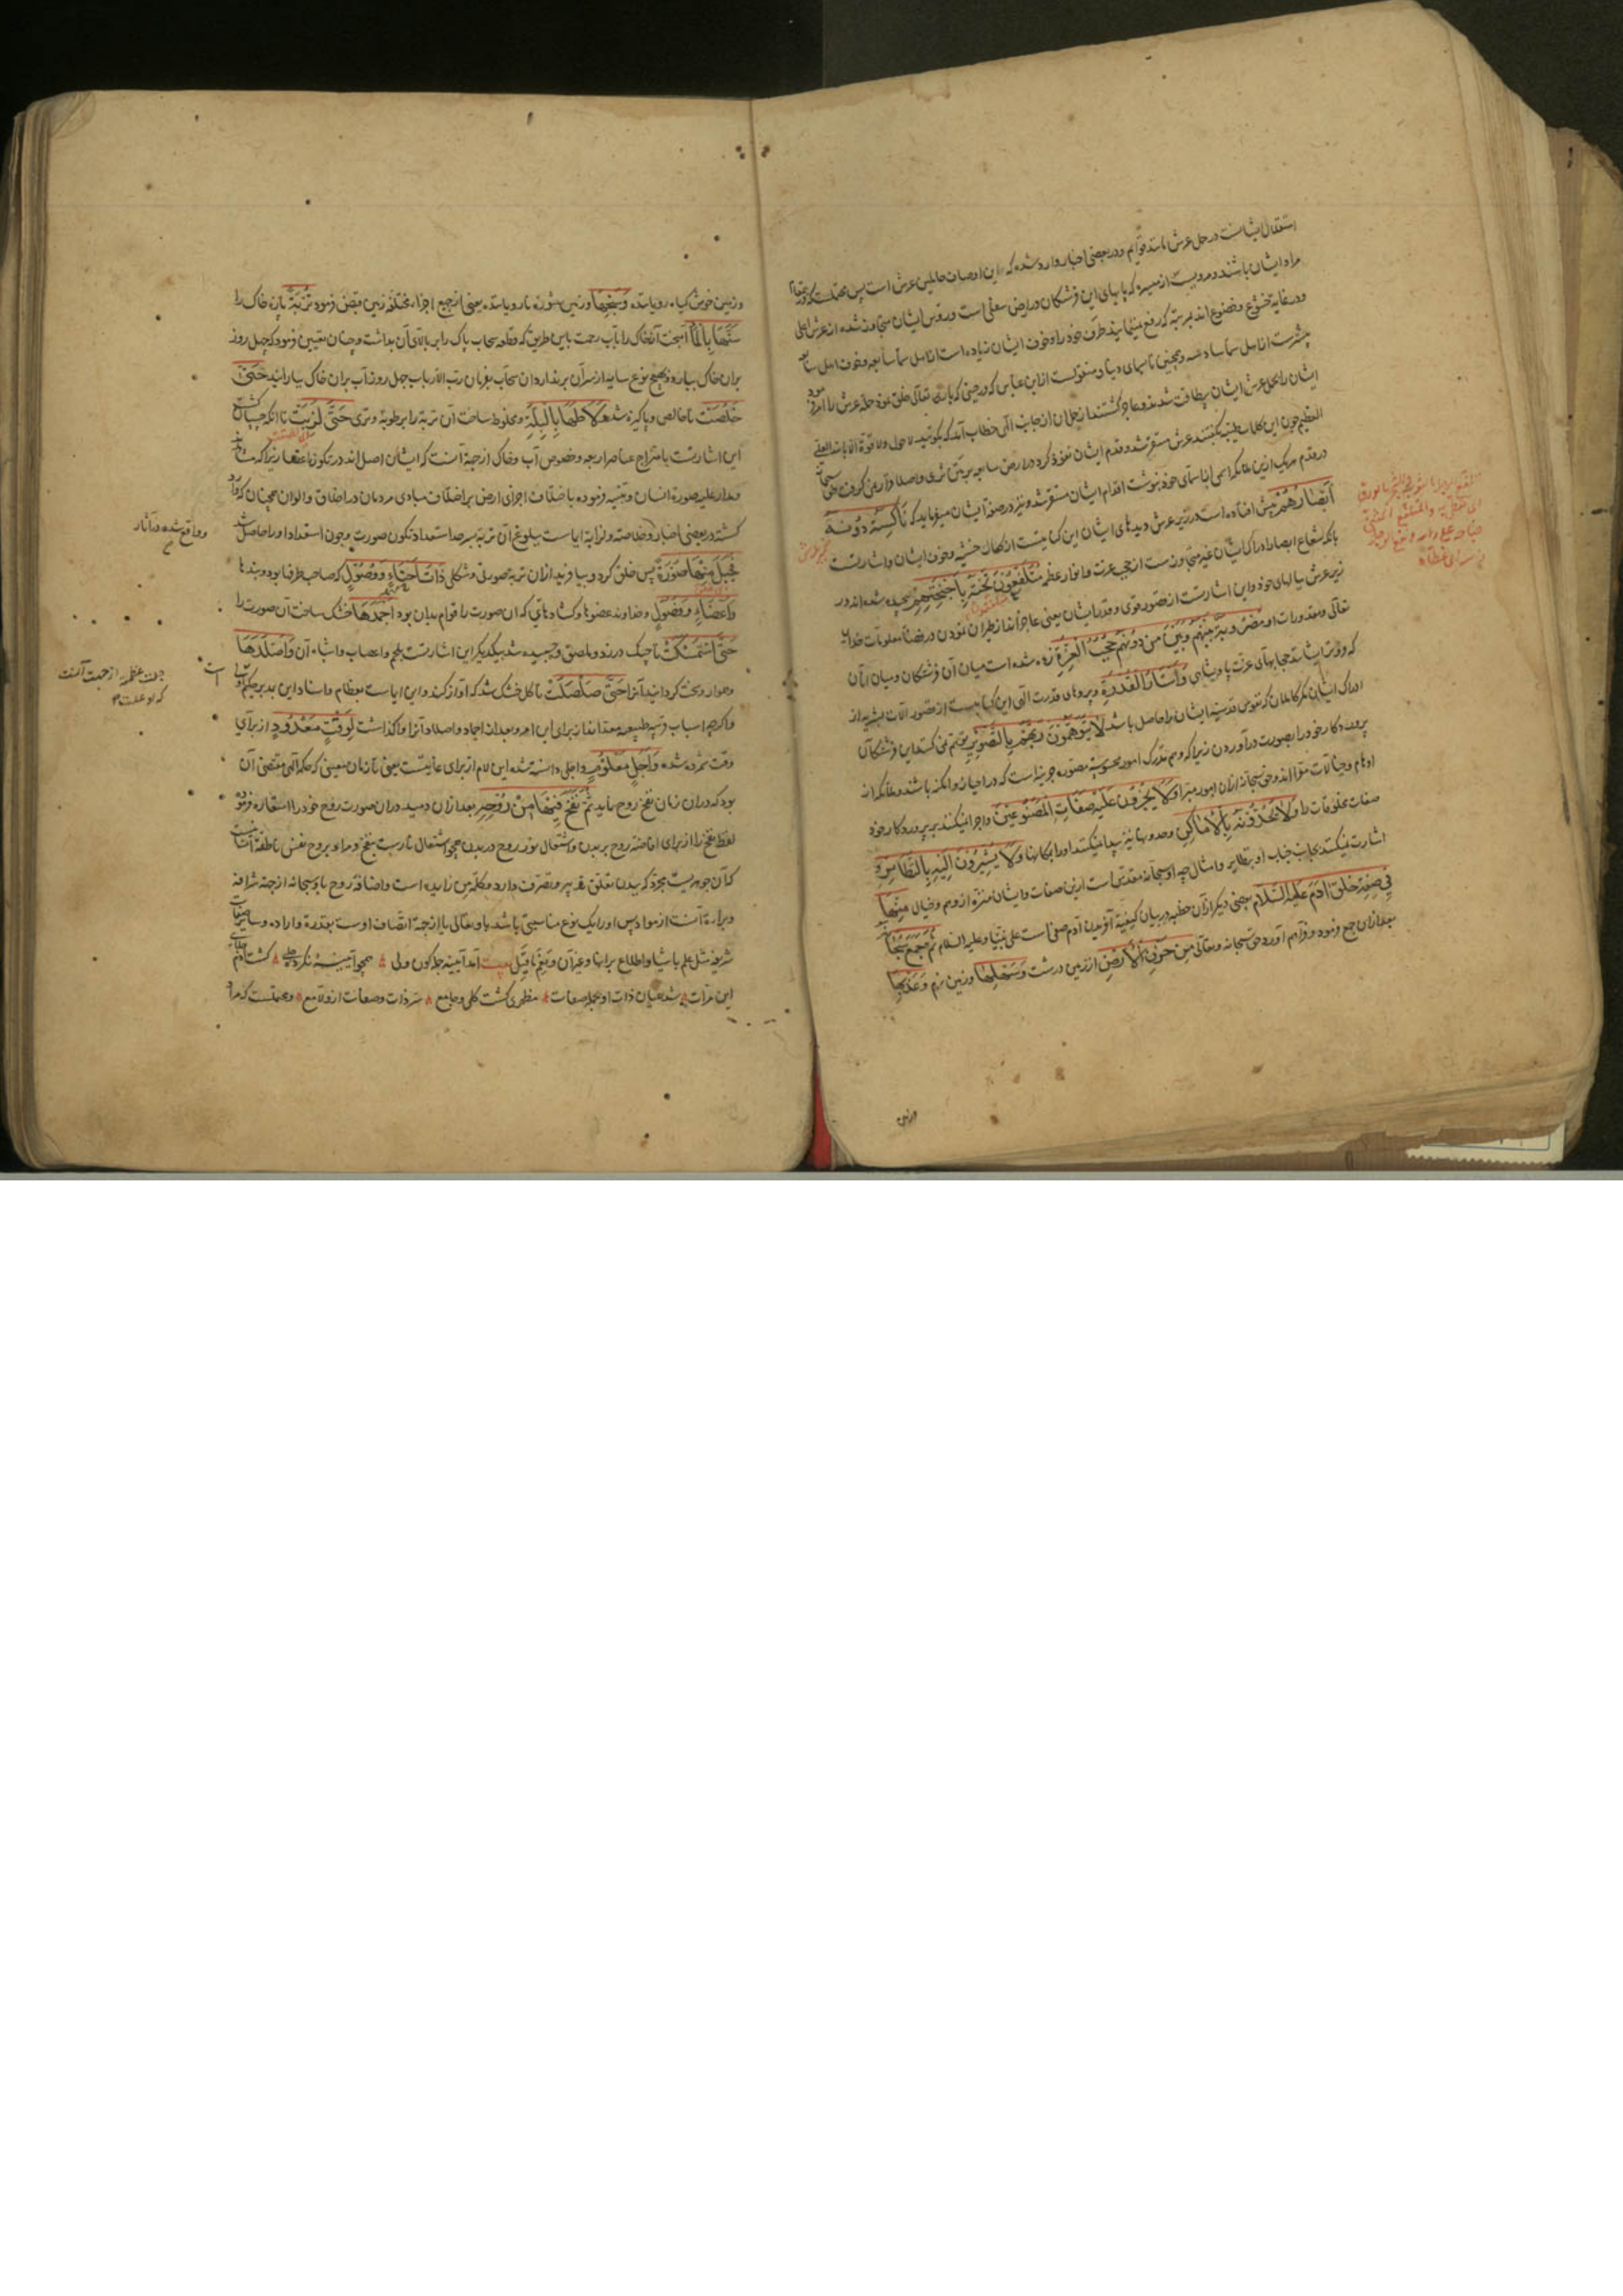 استقلال ایشانست در حمل عرش مانند قوایم و در بعضی اخبار وارد شده که این اوصاف حاملین عرش است پس محتملست که
مراد ایشان باشند و مرویست از میسره که پایهای این فرشتگان در ارض سفلی است و رؤس ایشان متجاوز شده از عرش اعلی
و در غایة خشوع و خضوع اند بمرتبه که رفع نمینمایند طرف خود را و خوف ایشان زیاده است از اهل سماء سابعه و خوف اهل
بیشترست از اهل سماء سادسه و همچنین تا سمای دنیا و منقولست از ابن عباس که در حینی که باری تعالی خلق نمود حمله عرش را امر
ایشان را بحمل عرش ایشان بیطاقت شدند و عاجز گشتند از حمل آن از جانب الهی خطاب آمد که بگوئید لا حول و لا قوة الا بالله العلی
العظیم چون این کلمات طیبه بگفتند عرش مستقر شد و قدم ایشان نفوذ کرد در ارض سابعه بر متن ثری
در قدم هریک ازین ملائکه اسمی از اسمای خود نوشت اقدام ایشان مستقر شد و نیز در صفة ایشان میفرماید که نَاکِسَةٌ دُونَهُ
اَبْصَارُهُمْ پیش افتاده است در زیر عرش دیدهای ایشان این کنایتست از کمال خشیه و خوف ایشان و اشارتست
بآنکه شعاع ابصار ادراک ایشان غیر متجاوزست از حجب عزت و انوار عظمة مُتَلَفِّعُونَ تَحْتَهُ بِاَجْنِحَتِهِمْ پیچیده شده اند در
زیر عرش ببالهای خود و این اشارتست از قصور قوی و قدر ایشان یعنی عاجزاند از طیران نمودن در فضاء معلومات خدای
تعالی و مقدورات او مَضْرُوبَةٌ بَیْنَهُمْ وَبَیْنَ مَنْ دُونَهُمْ حُجُبُ الْعِزَّةِ زده شده است میان آن فرشتگان و میان آنان
که فروتر ایشانند حجابهای عزت پادشاهی وَاَسْتَارُ الْقُدْرَةِ و پردهای قدرت الهی این کنایتست از قصور آلات بشریه از
ادراک ایشان مگر کاملان که نفوس قدسیه ایشان را حاصل باشد لَا یَتَوَهَّمُونَ رَبَّهُمْ بِالتَّصْوِیرِ توهم نمی کنند این فرشتگان
پروردگار خود را بصورت در آوردن زیرا که وهم مدرک امور محسوسه مصوره جزییه است که در احیاز و امکنه باشند و ملائکه از
اوهام و خیالات مبرااند و حق سبحانه از آن امور مبرا وَلَا یُجْرُونَ عَلَیْهِ صِفَاتِ الْمَصْنُوعِینَ و اجرا نمیکنند بر پروردگار خود
صفات مخلوقات را وَلَا یَحُدُّونَهُ بِالْاَمَاکِنِ و حد و نهایة پیدا نمیکنند او را بمکانها وَلَا یُشِیرُونَ اِلَیْهِ بِالنَّظَائِرِ و
اشارت نمیکنند بجانب جناب او بنظایر و امثال چه او سبحانه مقدس است ازین صفات و ایشان منزه از وهم و خیال مِنْهَا
فِی صِفَةِ خَلْقِ آدَمَ عَلَیْهِ السَّلَام بعضی دیگر از آن خطبه در بیان کیفیة آفریدن آدم صفی است علی نبینا و علیه السلام ثُمَّ جَمَعَ سُبْحَانَهُ
بعد از آن جمع فرمود و فراهم آورد حق سبحانه و تعالی مِنْ حَزْنِ الْاَرْضِ از زمین درشت وَسَهْلِهَا و زمین نرم وَعَذْبِهَا
و زمین
و زمین خوش گیاه رویانده وَسَبَخِهَا و زمین شوره نارویانده یعنی از جمیع اجزاء مختلفه زمین قبض فرمود تُرْبَةً پاره خاک را
سَنَّهَا بِالْمَاءِ آمیخت آنخاک را بآب رحمت باین طریق که قطعه سحاب پاک را بر بالای آن بداشت و چنان تعیین فرمود که چهل روز
بران خاک ببارد و بهیچ نوع سایه از سرآن برندارد آن سحاب بفرمان رب الارباب چهل روز آب بران خاک بارانید حَتَّی
خَلَصَتْ تا خالص و پاکیزه شد وَلَاطَهَا بِالْبَلَّةِ و مخلوط ساخت آن تربة را برطوبة و تری حَتَّی لَزَبَتْ تا آنکه چسبان گشت
این اشارتست بامتزاج عناصر اربعه و خصوص آب و خاک ازجهة آنست که ایشان اصل اند در تکون اعضا زیرا که
مدار علیه صورة انسان و بنیه فرموده باختلاف اجزای ارض بر اختلاف مبادی مردمان در اخلاق و الوان همچنان که وارد
گشته در بعضی اخبار و خلاصته و لزابه ایماست ببلوغ آن تربة بسر حد استعداد تکون صورت و چون استعداد او را حاصل شد
فَجَبَلَ مِنْهَا صُورَةً پس خلق کرد و بیافرید ازان تربه صورتی و شکلی ذَاتَ اَحْنَاءٍ وَوُصُولٍ که صاحب طرفها بود و بندها
وَاَعْضَاءٍ وَفُصُولٍ و خداوند عضوها و گشادهای که آن صورت را قوام بدان بود اَجْمَدَهَا خشک ساخت آن صورت را
حَتَّی اسْتَمْسَکَتْ تا چنگ در زد و ملصق و چسبیده شد بیکدیگر این اشارتست بلحم و اعصاب و اشباه آن وَاَصْلَدَهَا
و هموار و سخت گردانید آنرا حَتَّی صَلْصَلَتْ تا گل خشک شد که آواز کند و این ایماست بعظام و اسناد این بمدبر حکیم
و اگرچه اسباب قریبه طبیعیه معداند از برای این امر و بعد از ایجاد و اصلاد آنرا واگذاشت لِوَقْتٍ مَعْدُودٍ از برای
وقت شمرده شده وَاَجَلٍ مَعْلُومٍ و اجلی دانسته شده این لام از برای غایتست یعنی تا زمان معینی که حکم الهی مقتضی آن
بود که در ان زمان نفخ روح نماید ثُمَّ نَفَخَ فِیهَا مِنْ رُوحِهِ بعد ازان دمید در ان صورت روح خود را استعاره فرمود
لفظ نفخ را از برای افاضه روح بر بدن و اشتعال نور روح در بدن همچو اشتعال نارست بنفخ و مراد بروح نفس ناطقه انسانیست
که آن جوهریست مجرد که ببدن تعلق تدبیر و تصرف دارد و کلمه من زایده است و اضافة روح باو سبحانه ازجهة شرافة
و براءة آنست از مواد پس او را یک نوع مناسبتی باشد باو تعالی یا ازجهة اتصاف اوست بقدرة و اراده و سایر صفات
شریفه مثل علم باشیا و اطلاع بر انها و غیر آن وَنِعْمَ مَا قِیلَ بیت آمد آیینه جمله کون ولی ٨ همچو آیینه نکرده جلی ٨ گشت آدم
این مرآت ٨ شد عیان ذات او بجمله صفات ٨ مظهری گشت کلی و جامع ٨ سر ذات و صفات ازو لامع ٨ و محتملست که مراد
و واقع شده در آثار